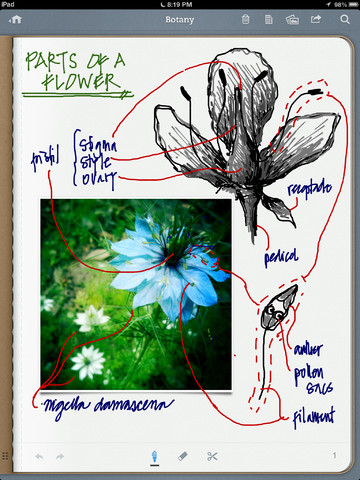 iPad
8:19 PM
98%
Botany
PARTS OF A
FLOWER
pistil
stigma
style
ovary
receptacle
pedicel
anther
pollen
sacs
filament
nigella damascena
1